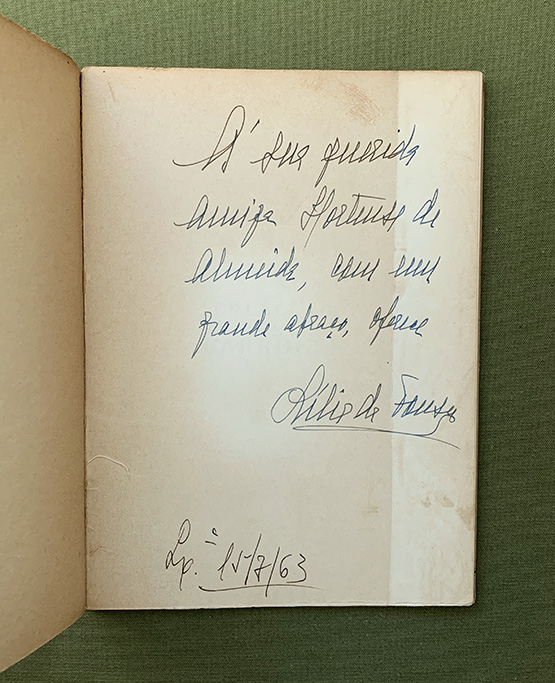 À sua querida
amiga Hortense de
Almeida, com um
grande abraço, oferece
Lília da Fonseca
Lx.ª 15/7/63